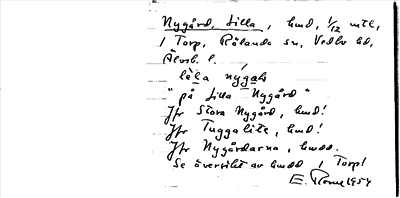 Nygård, Lilla, hmd, 1/12 mtl,
i Torp, Rölanda sn, Vedbo hd,
Älvsb. l.
lɩla nygaḷ
"på Lilla Nygård"
Jfr Stora Nygård, hmd!
Jfr Tuggalite, hmd!
Jfr Nygårdarna, hmdd.
Se översikt av hmdd i Torp!
E. 1954